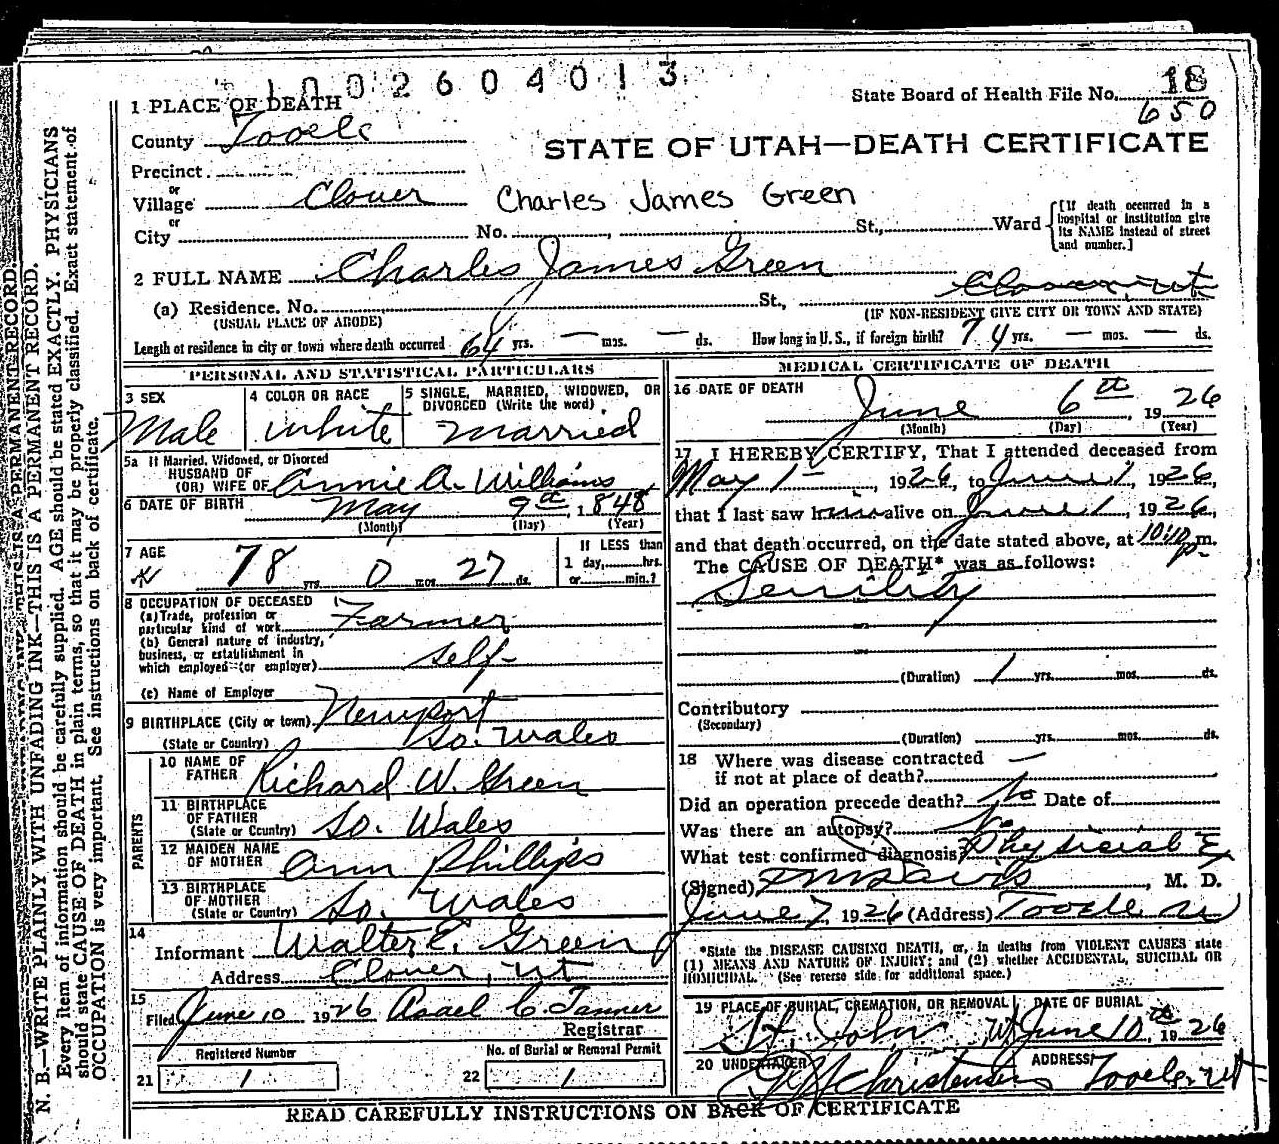 1002604013
State Board of Health File No. 18
650
1 PLACE OF DEATH
County Tooele
STATE OF UTAH—DEATH CERTIFICATE
Precinct
or
Village Clover
Charles James Green
or
City No. , St., Ward
[If death occurred in a hospital or institution give its NAME instead of street and number.]
2 FULL NAME Charles James Green
(a) Residence. No. St., Clover, Ut
(USUAL PLACE OF ABODE) (IF NON-RESIDENT GIVE CITY OR TOWN AND STATE)
Length of residence in city or town where death occurred 64 yrs. — mos. — ds. How long in U.S., if foreign birth? 74 yrs. — mos. — ds.
PERSONAL AND STATISTICAL PARTICULARS
3 SEX 4 COLOR OR RACE 5 SINGLE, MARRIED, WIDOWED, OR DIVORCED (Write the word)
Male white Married
5a If Married, Widowed, or Divorced
HUSBAND OF
(OR) WIFE OF Annie A. Williams
6 DATE OF BIRTH May 9th, 1848
(Month) (Day) (Year)
7 AGE 78 yrs. 0 mos. 27 ds.
If LESS than
1 day, hrs.
or min.?
8 OCCUPATION OF DECEASED
(a) Trade, profession or
particular kind of work Farmer
(b) General nature of industry,
business, or establishment in
which employed (or employer) Self-
(c) Name of Employer
9 BIRTHPLACE (City or town) Newport
(State or Country) So. Wales
PARENTS
10 NAME OF
FATHER Richard W. Green
11 BIRTHPLACE
OF FATHER
(State or Country) So. Wales
12 MAIDEN NAME
OF MOTHER Ann Phillips
13 BIRTHPLACE
OF MOTHER
(State or Country) So. Wales
14
Informant Walter E. Green
Address Clover, Ut
15
Filed June 10 1926 Asael C. Tanner
Registrar
Registered Number No. of Burial or Removal Permit
21 1 22 1
MEDICAL CERTIFICATE OF DEATH
16 DATE OF DEATH
June 6th, 1926
(Month) (Day) (Year)
17 I HEREBY CERTIFY, That I attended deceased from
May 1—, 1926, to June 1, 1926,
that I last saw him alive on June 1, 1926,
and that death occurred, on the date stated above, at 10:10 p m.
The CAUSE OF DEATH* was as follows:
Senility
(Duration) 1 yrs. mos. ds.
Contributory
(Secondary)
(Duration) yrs. mos. ds.
18 Where was disease contracted
if not at place of death? —
Did an operation precede death? No Date of
Was there an autopsy? No
What test confirmed diagnosis? Physicial Ex
(Signed) , M. D.
June 7, 1926 (Address) Tooele Ut
*State the DISEASE CAUSING DEATH, or, in deaths from VIOLENT CAUSES state
(1) MEANS AND NATURE OF INJURY; and (2) whether ACCIDENTAL, SUICIDAL OR
HOMICIDAL. (See reverse side for additional space.)
19 PLACE OF BURIAL, CREMATION, OR REMOVAL DATE OF BURIAL
St. John Ut June 10th 1926
20 UNDERTAKER ADDRESS
Christensen Tooele, Ut
READ CAREFULLY INSTRUCTIONS ON BACK OF CERTIFICATE
N. B.—WRITE PLAINLY WITH UNFADING INK—THIS IS A PERMANENT RECORD.
Every item of information should be carefully supplied. AGE should be stated EXACTLY. PHYSICIANS
should state CAUSE OF DEATH in plain terms, so that it may be properly classified. Exact statement of
OCCUPATION is very important. See instructions on back of certificate.